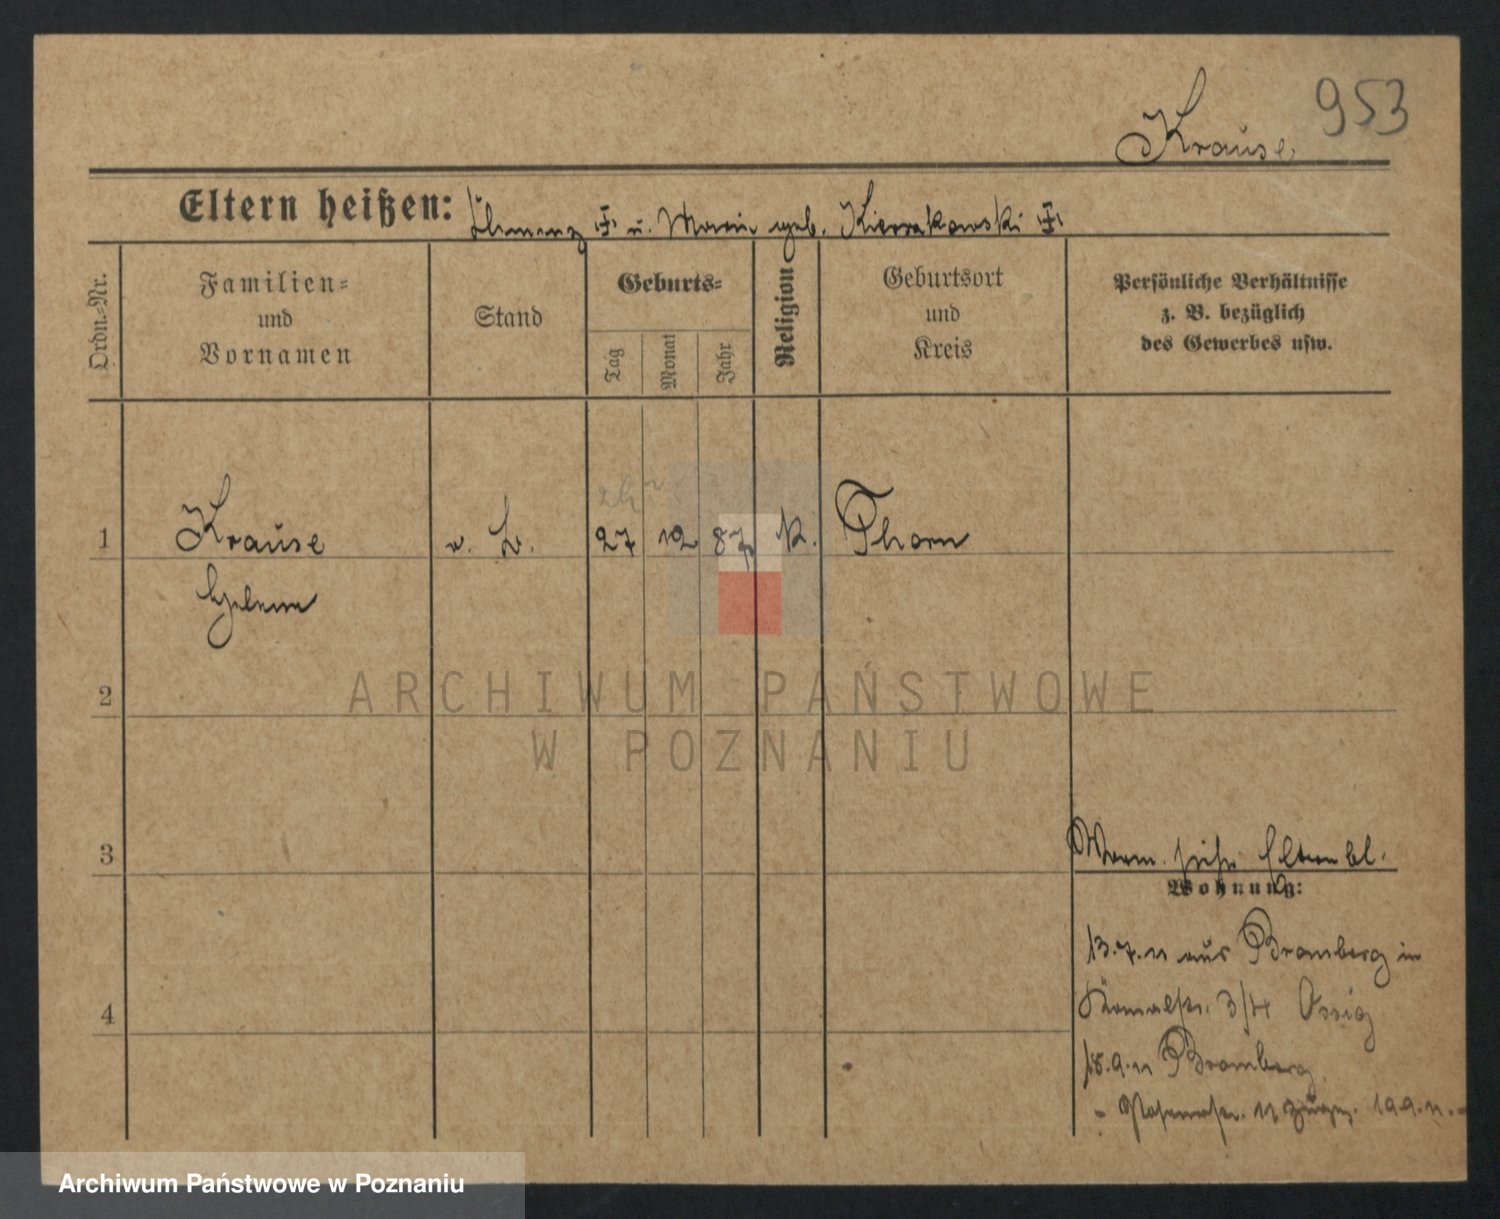 953
Krause
Eltern heißen: Clemenz u. Marie geb.
Ordn.-Nr.
Familien- und Vornamen
Stand
Geburts-
Tag
Monat
Jahr
Religion
Geburtsort und Kreis
Persönliche Verhältnisse
z. B. bezüglich
des Gewerbes usw.
1 Krause o. B. 27 12 87 k. Thorn
Helene
2
3
4
Vorm. siehe Elternbl.
Wohnung:
13.7.11 aus Bromberg in
3/4
18.9.11 Bromberg
11 19.9.11.
ARCHIWUM PAŃSTWOWE
W POZNANIU
Archiwum Państwowe w Poznaniu